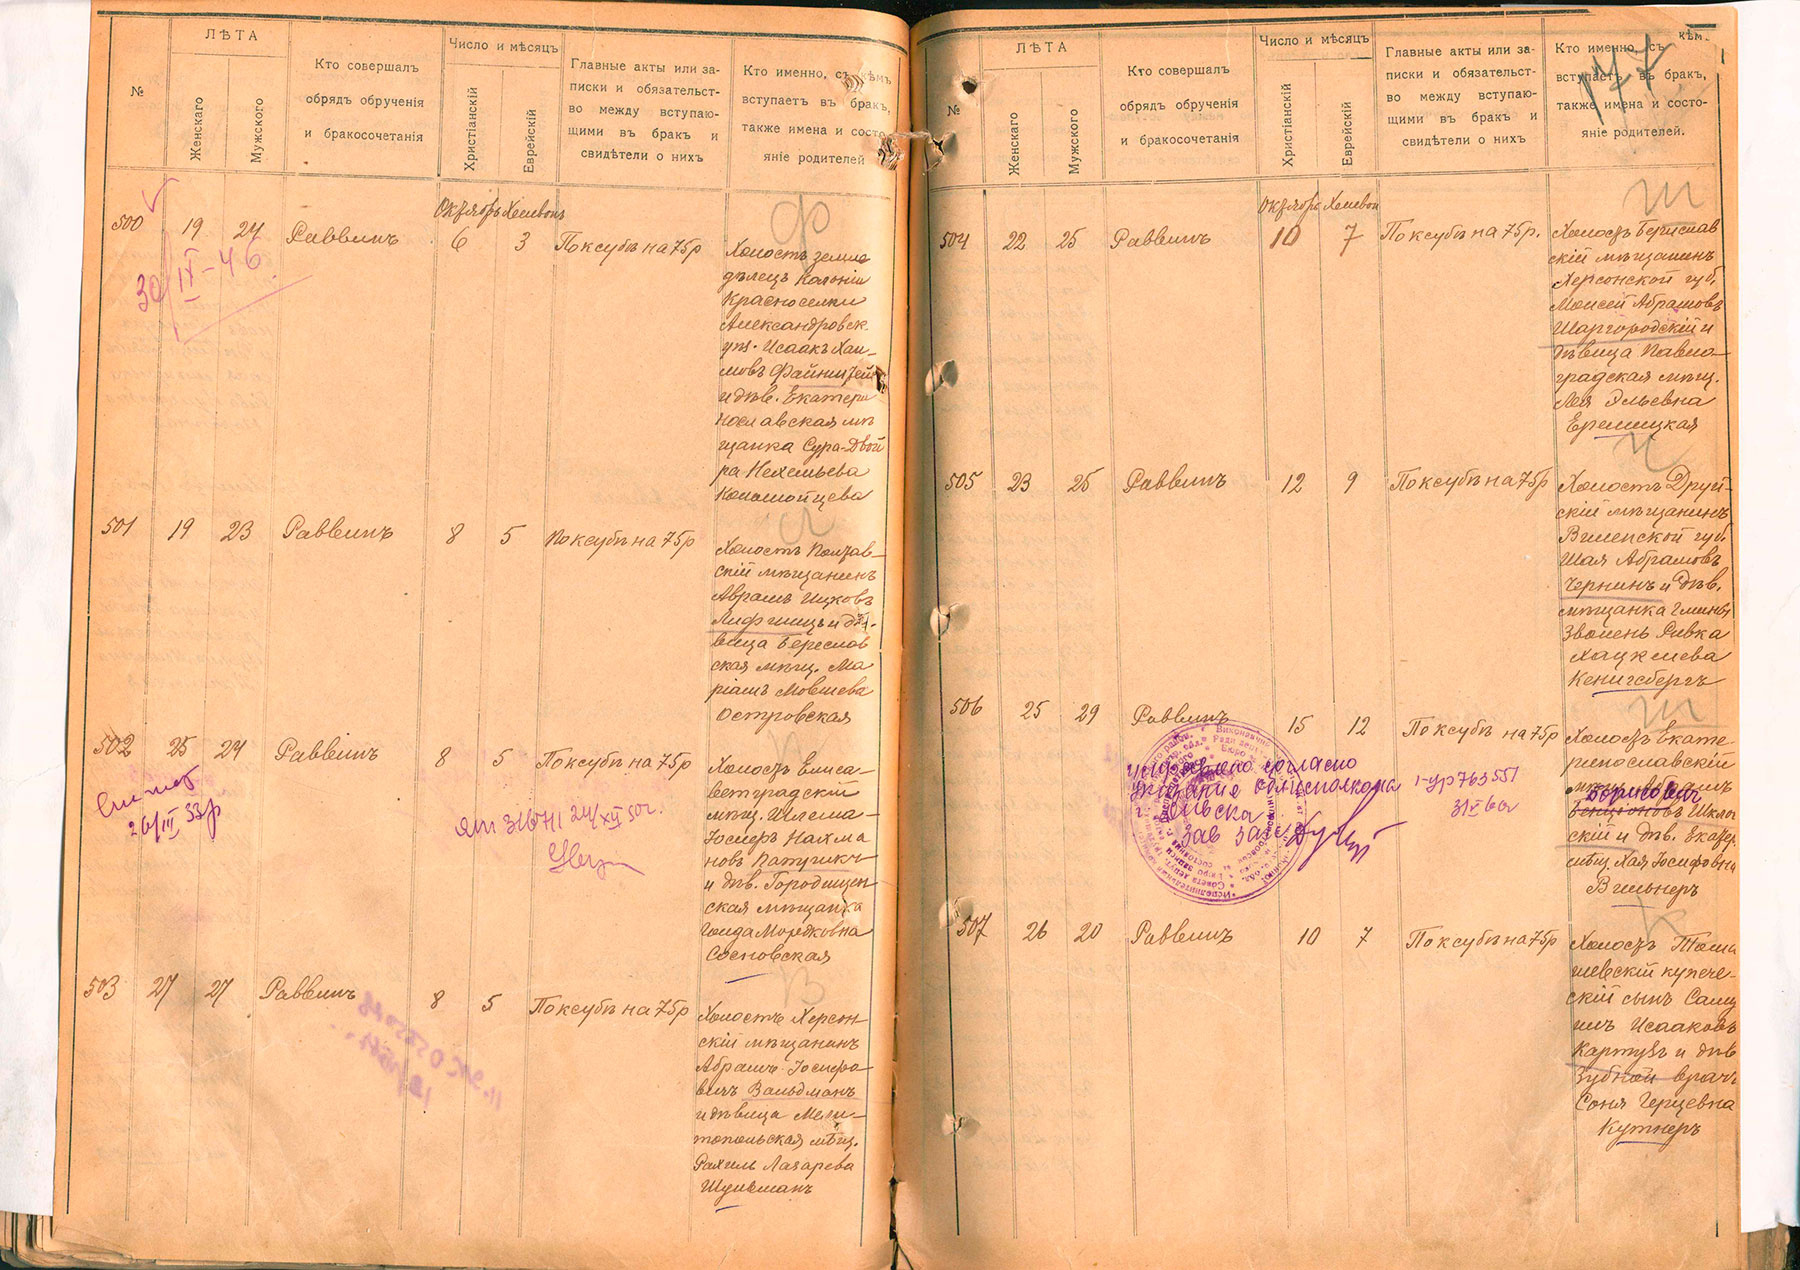 №
ЛѢТА
Женскаго
Мужского
Кто совершалъ
обрядъ обрученія
и бракосочетанія
Число и мѣсяцъ
Христіанскій
Еврейскій
Главные акты или за-
писки и обязательст-
во между вступаю-
щими въ бракъ и
свидѣтели о нихъ
Кто именно, съ кѣмъ
вступаетъ въ бракъ,
также имена и состо-
яніе родителей
500
19
24
Раввинъ
Октябрь Хешвонъ
6
3
По ксубѣ на 75р
Холостъ земле
дѣлецъ колоніи
Красноселки
Александровск.
уѣз. Исаакъ Хаи-
мовъ
и дѣв. Екатери
нославская мѣ
щанка Сура-Двой
ра Нехемьева
Коломойцева
30/IX-46
501
19
23
Раввинъ
8
5
По ксубѣ на 75р
Холостъ Полтав-
скій мѣщанинъ
Аврамъ Ицковъ
Лифшицъ и дѣ-
вица Береслав
ская мѣщ. Ма
ріамъ Мовшева
Островская
502
25
24
Раввинъ
8
5
По ксубѣ на 75р
Холостъ Елиса-
ветградскій
мѣщ. Шлема-
Іосифъ Нахма
новъ
и дѣв. Городищен
ская мѣщанка
Голда Мордковна
Сосновская
26/III 33р
24/XII 50г.
503
27
27
Раввинъ
8
5
По ксубѣ на 75р
Холостъ Херсон-
скій мѣщанинъ
Абрамъ Іосифо-
вичъ Вальдманъ
и дѣвица Мели-
топольская мѣщ.
Рахиль Лазарева
Шульманъ
№
ЛѢТА
Женскаго
Мужского
Кто совершалъ
обрядъ обрученія
и бракосочетанія
Число и мѣсяцъ
Христіанскій
Еврейскій
Главные акты или за-
писки и обязательст-
во между вступаю-
щими въ бракъ и
свидѣтели о нихъ
Кто именно, съ кѣмъ
вступаетъ въ бракъ,
также имена и состо-
яніе родителей.
177
504
22
25
Раввинъ
Октябрь Хешвон
10
7
По ксубѣ на 75р.
Холостъ Берислав
скій мѣщанинъ
Херсонской губ.
Моисей Абрамовъ
Шаргородскій и
дѣвица Павло-
градская мѣщ.
Лея Эльевна
505
23
25
Раввинъ
12
9
По ксубѣ на 75р
Холостъ Друй-
скій мѣщанинъ
Виленской губ.
Шая Абрамовъ
Чернинъ и дѣв.
мѣщанка
Ривка
Хацкелева
Кенигсбергъ
506
25
29
Раввинъ
15
12
По ксубѣ на 75р
Холостъ Екате
ринославскій
Борисович
Бенціоновъ Шклов
скій и дѣв. Екатер.
мѣщ. Хая Іосифовна
Вильнеръ
согласно
Облисполкома
507
26
20
Раввинъ
10
7
По ксубѣ на 75р
Холостъ
купече-
скій сынъ
Исааковъ
Картужъ и дѣв
Зубной врачъ
Соня Герцевна
Кутнеръ